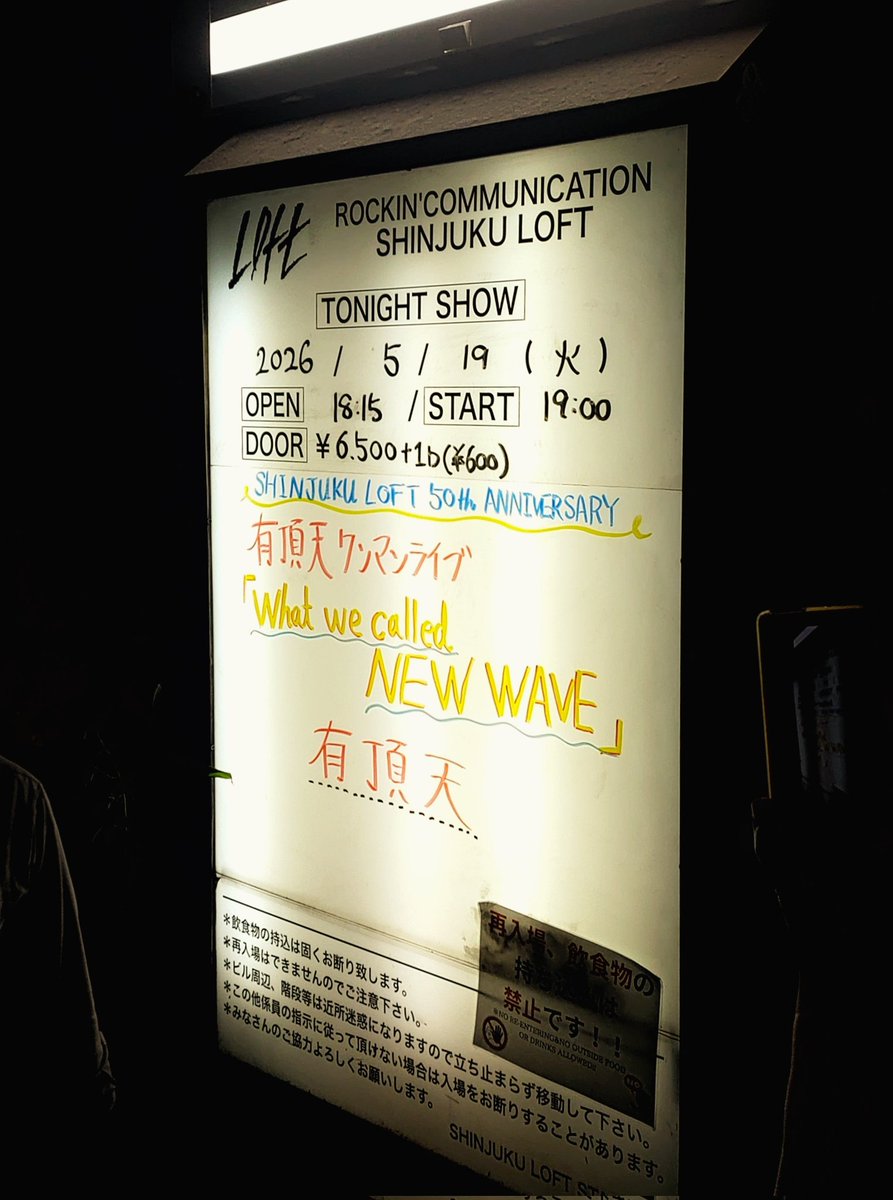 Loft
ROCKIN'COMMUNICATION
SHINJUKU LOFT
TONIGHT SHOW
2026 / 5 / 19 (火)
OPEN 18:15 / START 19:00
DOOR ¥6.500+1D(¥600)
SHINJUKU LOFT 50th ANNIVERSARY
有頂天ワンマンライブ
「What we called
NEW WAVE」
有頂天
＊飲食物の持込は固くお断り致します。
＊再入場はできませんのでご注意下さい。
＊ビル周辺、階段等は近所迷惑になりますので立ち止まらず移動して下さい。
＊この他係員の指示に従って頂けない場合は入場をお断りすることがあります。
＊みなさんのご協力よろしくお願いします。
再入場、飲食物の
持ち込みは
禁止です！！
NO RE-ENTERING&NO OUTSIDE FOOD
OR DRINKS ALLOWED
SHINJUKU LOFT